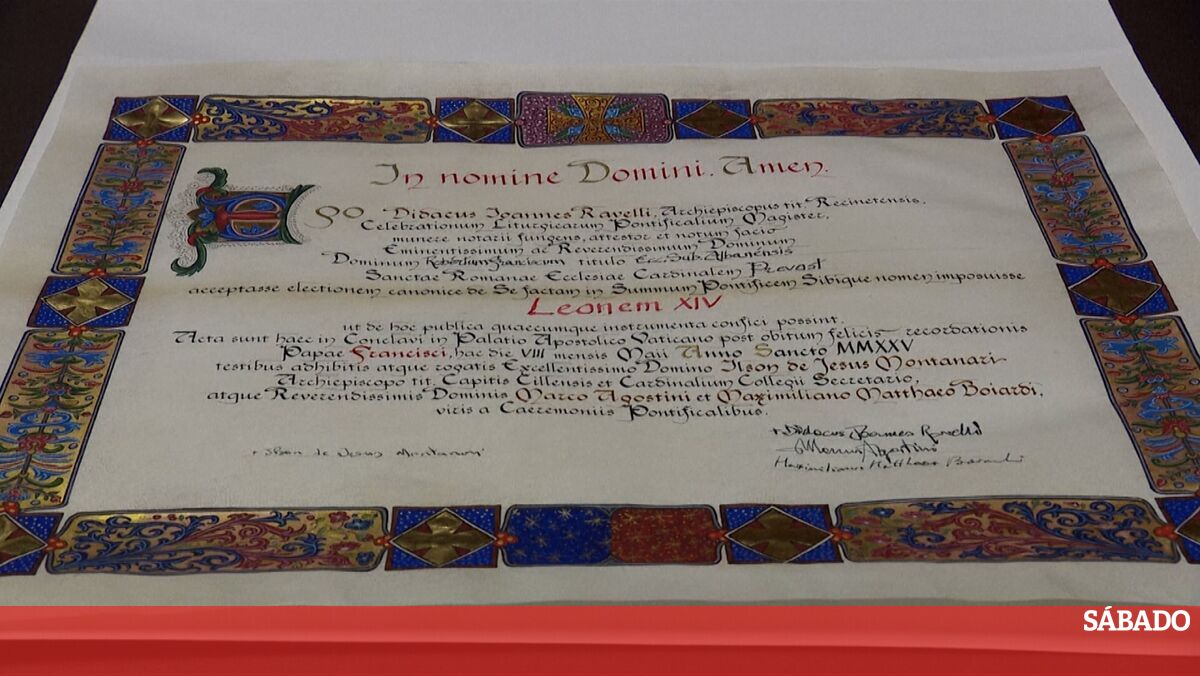 In nomine Domini. Amen.
EGO Didacus Ioannes Ravelli, Archiepiscopus tit. Recinetensis,
Celebrationum Liturgicarum Pontificalium Magister,
munere notarii fungens, attestor et notum facio
Eminentissimum ac Reverendissimum Dominum
Dominum Robertum Franciscum titulo Eccl. Sub. Albanensis
Sanctae Romanae Ecclesiae Cardinalem Prevost
acceptasse electionem canonice de Se factam in Summum Pontificem Sibique nomen imposuisse
Leonem XIV
ut de hoc publica quaecumque instrumenta confici possint.
Acta sunt haec in Conclavi in Palatio Apostolico Vaticano post obitum felicis recordationis
Papae Francisci, hac die VIII mensis Maii Anno Sancto MMXXV
testibus adhibitis atque rogatis Excellentissimo Domino Ilson de Jesus Montanari
Archiepiscopo tit. Capitis Cillensis et Cardinalium Collegii Secretario,
atque Reverendissimis Dominis Marco Agostini et Maximiliano Matthaeo Boiardi,
viris a Caeremoniis Pontificalibus.
+ Didacus Ioannes Ravelli
+ Ilson de Jesus Montanari
Marcus Agostini
Maximilianus Matthaeus Boiardi
SÁBADO